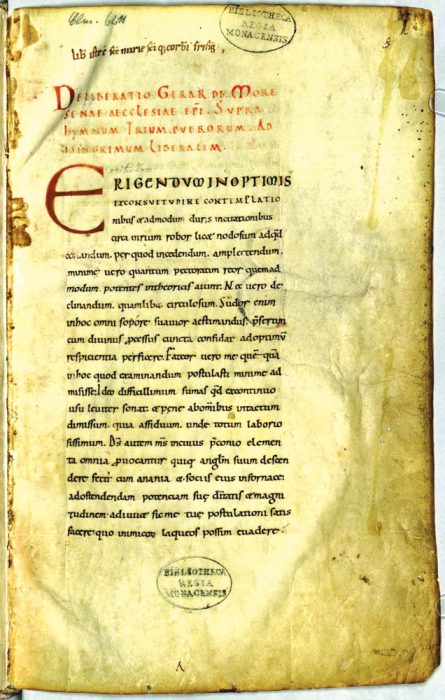 Clm. 6211
BIBLIOTHECA
REGIA
MONACENSIS
DELIBERATIO GERARDI MORE
SENAE AECCLESIAE EPI. SUPRA
HYMNUM TRIUM PUERORUM. AD
ISINGRIMUM LIBERALEM.
ERIGENDUM IN OPTIMIS
EX CONSUETUDINE CONTEMPLATIO
nibus & admodum duris incitationibus
circa uirium robor lic& nodosum adqd
. per quod incedendum. amplectendum.
minime uero quantum pectoratim reor quemad
modum potentes intheoricis aiunt. Nec uero de
clinandum. quamlib& circulosum. Sudor enim
inhoc omni sopore suauior aestimandus. psertim
cum diuinus pcessus cuncta confidat adoptimū
respicientia perficere. Fateor uero me quē quā
inhoc quod examinandum postulasti minime ad
misisse. Ideo difficillimum sumas qd excontinuo
usu leuiter sonat. & pene abomibus intactum
dimissum. quia assiduum. unde totum laborio
sissimum. Ds autem ms incuius pconio elemen
ta omnia puocantur quiq; anglm suum descen
dere fecit cum anania & sociis eius infornace.
adostendendam potenciam suę diitatis & magni
tudinem adiuu& sic me tuę postulationi satis
facere. quo inimicor laqueos possim euadere.
BIBLIOTHECA
REGIA
MONACENSIS
A